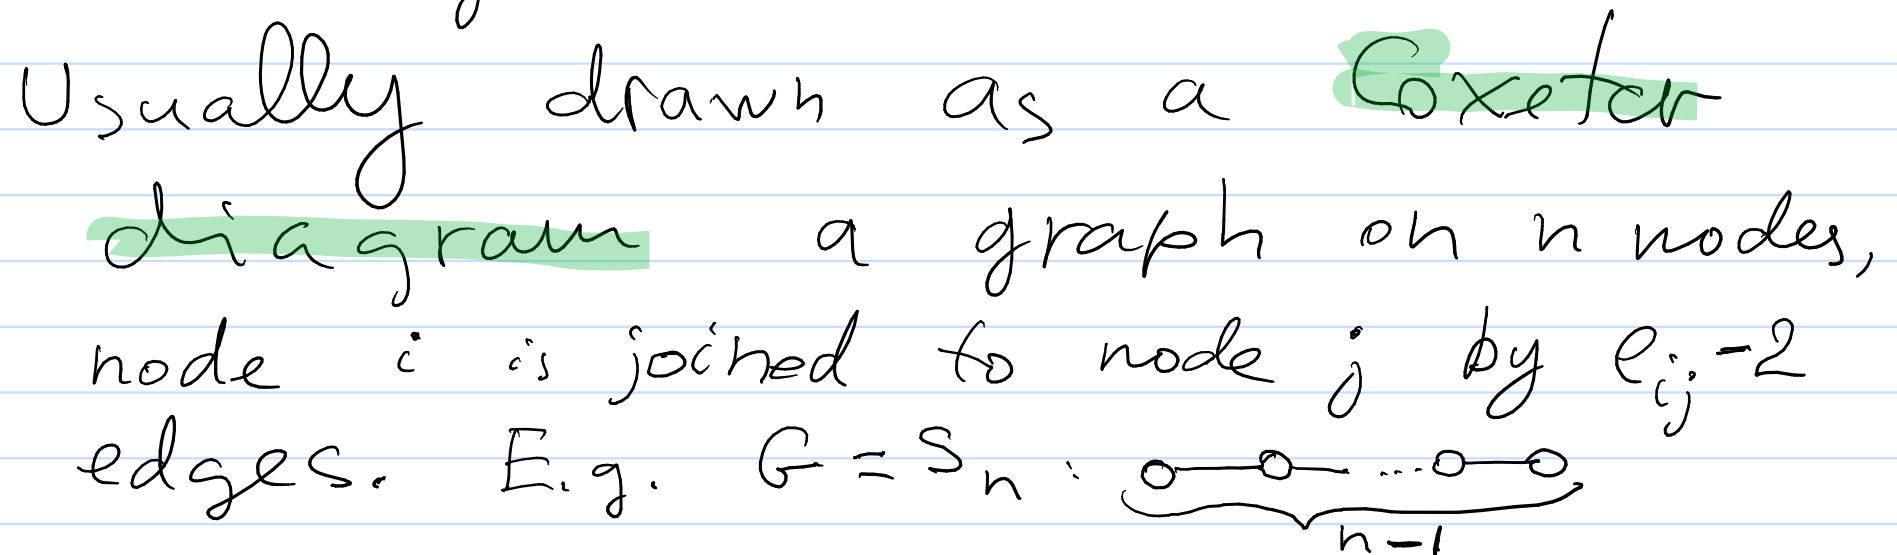 Usually drawn as a Coxeter
diagram a graph on n nodes,
node i is joined to node j by e_ij-2
edges. E.g. G=S_n:
n-1